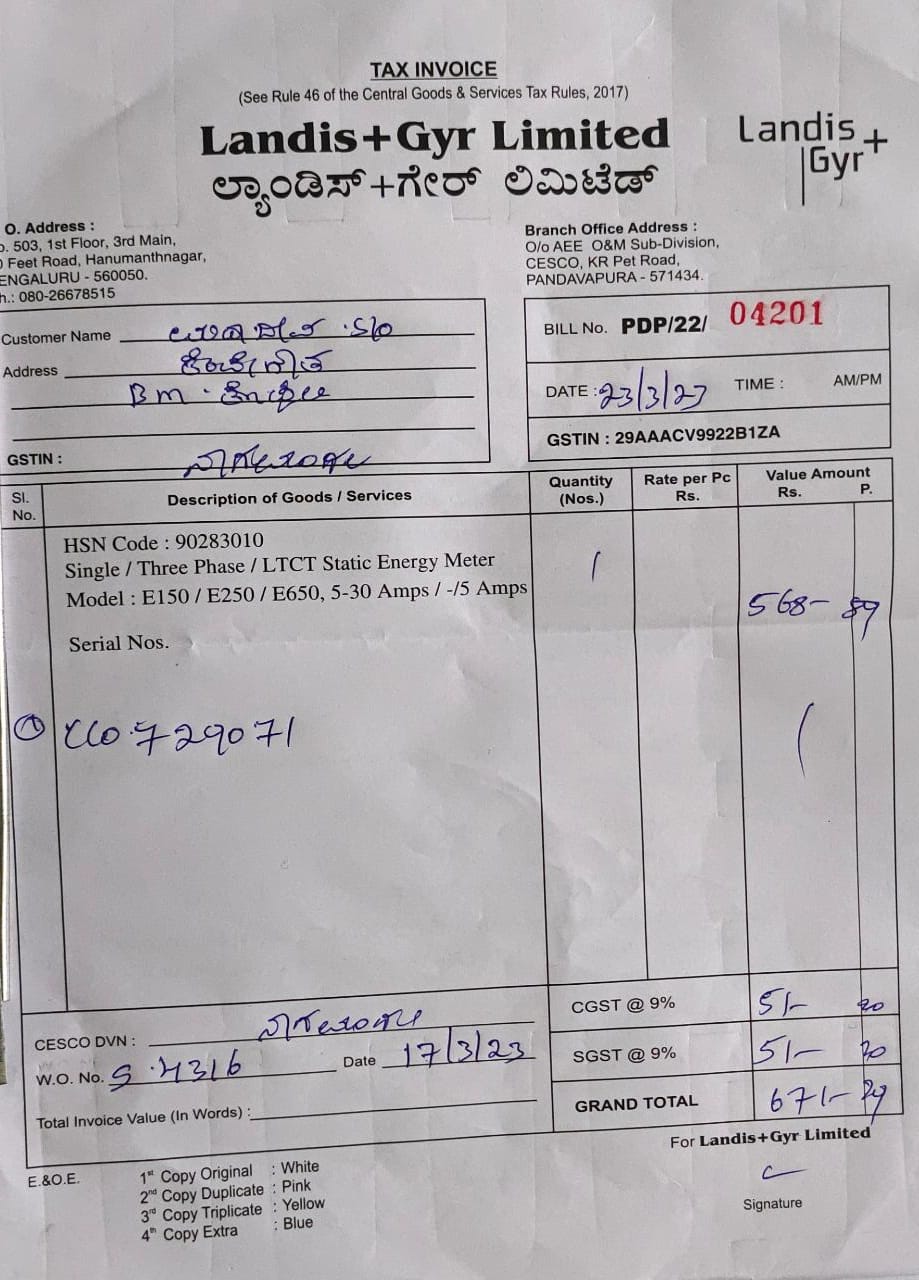 TAX INVOICE
(See Rule 46 of the Central Goods & Services Tax Rules, 2017)
Landis+Gyr Limited
ಲ್ಯಾಂಡಿಸ್+ಗೇರ್ ಲಿಮಿಟೆಡ್
Landis
Gyr+
O. Address :
503, 1st Floor, 3rd Main,
Feet Road, Hanumanthnagar,
ENGALURU - 560050.
h.: 080-26678515
Branch Office Address :
O/o AEE O&M Sub-Division,
CESCO, KR Pet Road,
PANDAVAPURA - 571434.
Customer Name S/o
Address
BM.
GSTIN :
BILL No. PDP/22/ 04201
DATE : 23/3/23 TIME : AM/PM
GSTIN : 29AAACV9922B1ZA
Sl. No. Description of Goods / Services Quantity (Nos.) Rate per Pc Rs. Value Amount Rs. P.
HSN Code : 90283010
Single / Three Phase / LTCT Static Energy Meter 1
Model : E150 / E250 / E650, 5-30 Amps / -/5 Amps 568- 89
Serial Nos.
729071
CGST @ 9% 51-
CESCO DVN :
SGST @ 9% 51-
W.O. No. Date 17/3/23
GRAND TOTAL 671-
Total Invoice Value (In Words) :
For Landis+Gyr Limited
E.&O.E.
1st Copy Original : White
2nd Copy Duplicate : Pink
3rd Copy Triplicate : Yellow
4th Copy Extra : Blue
Signature